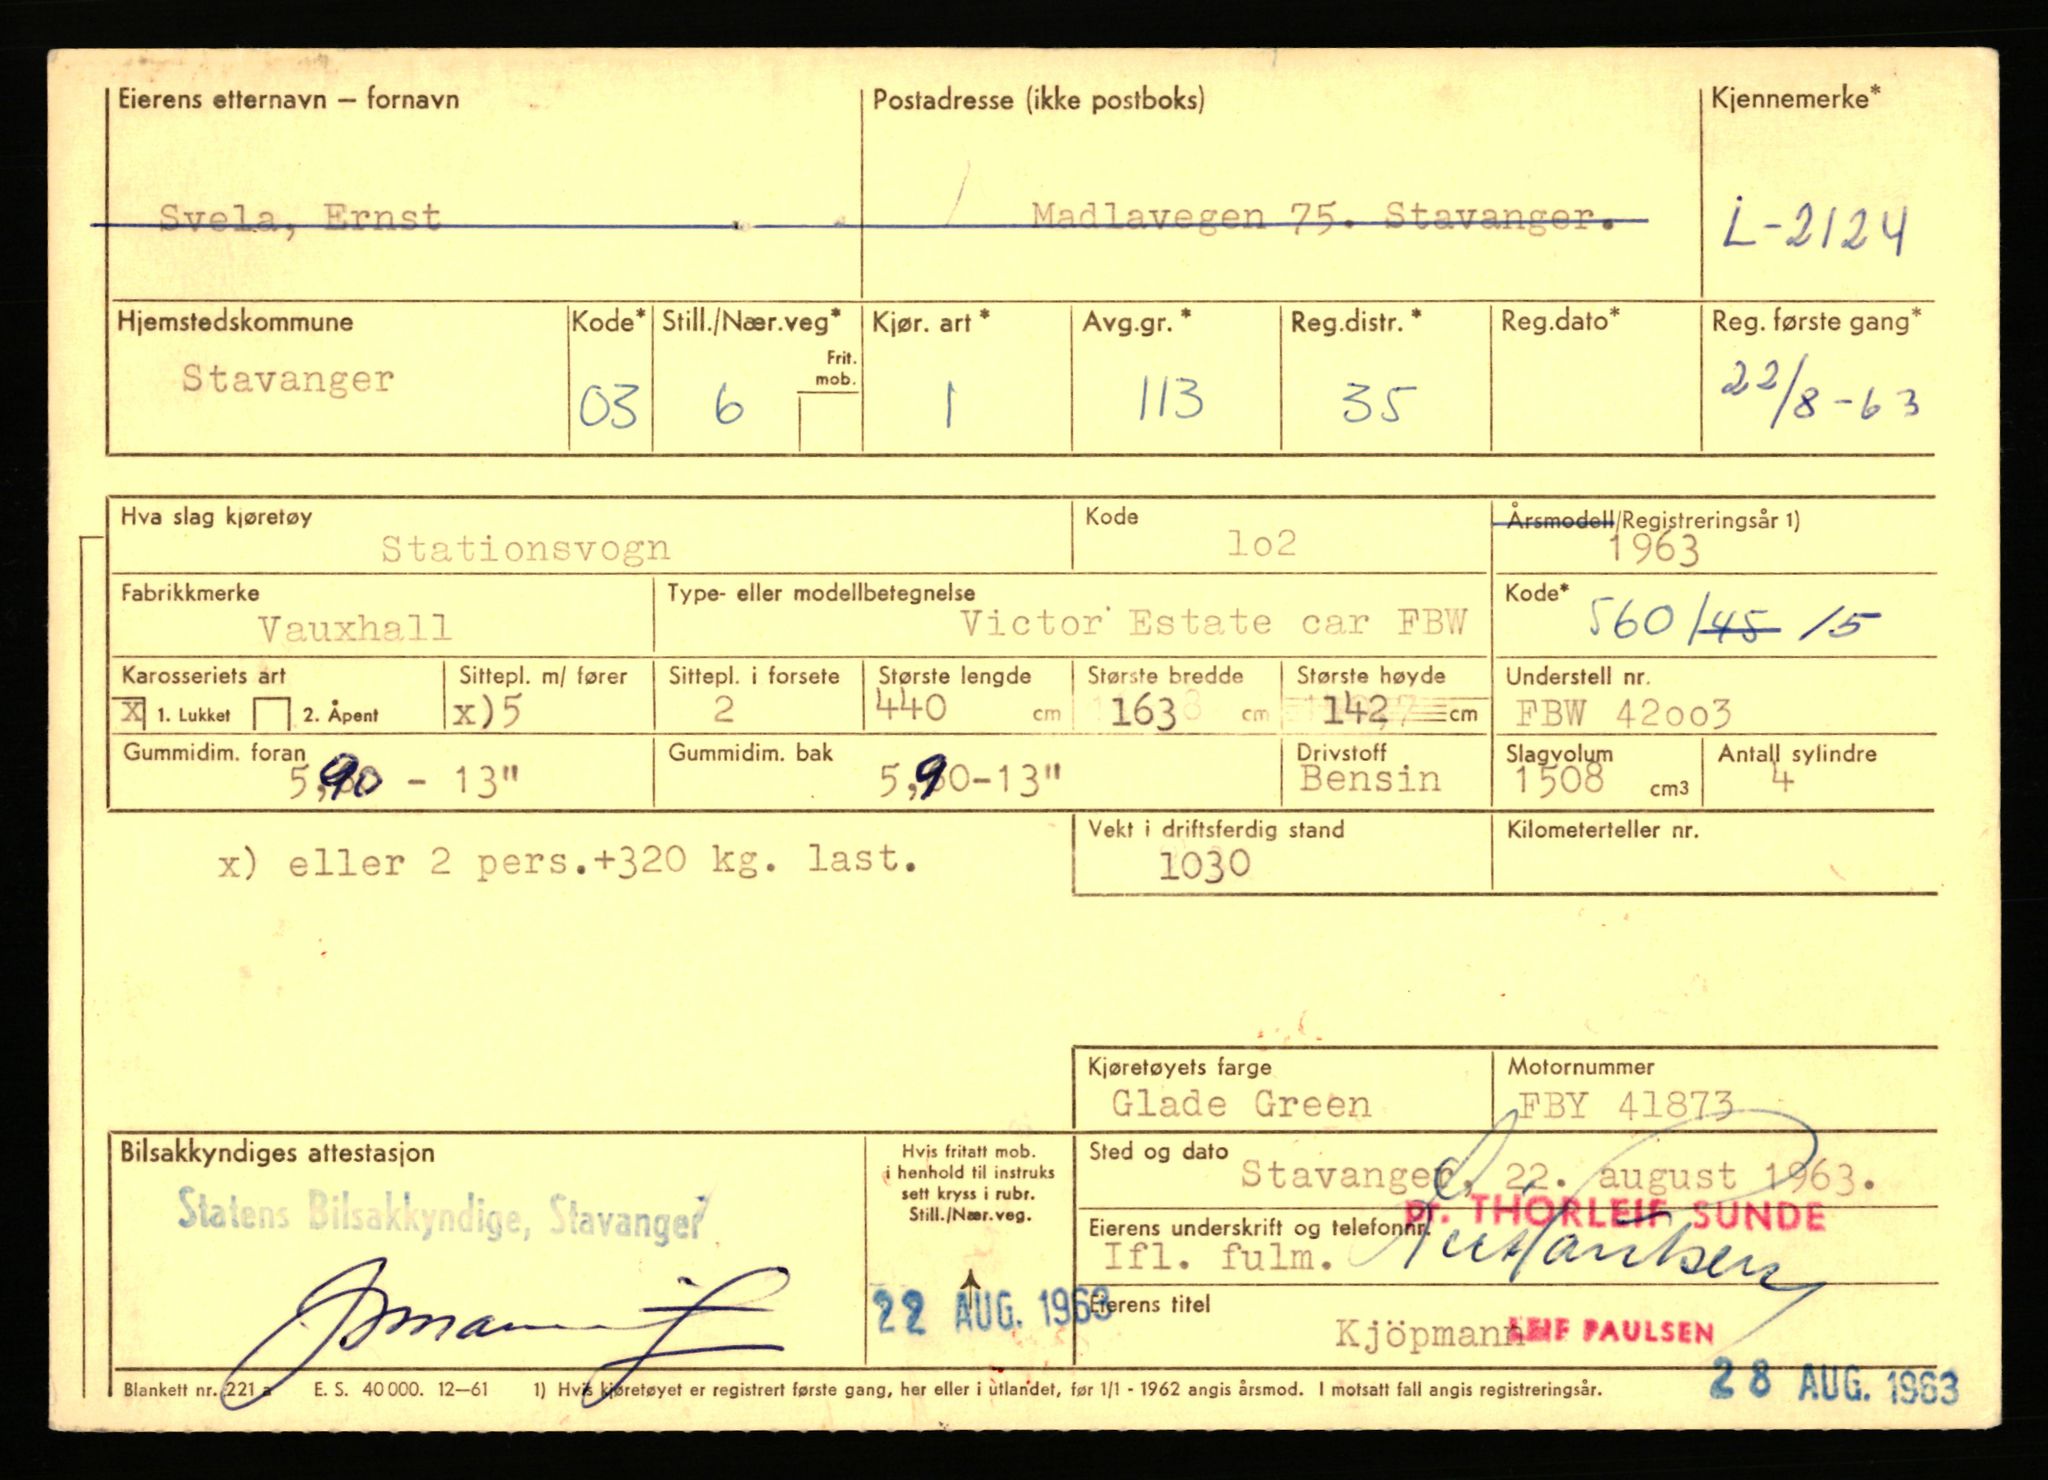 Eierens etternavn — fornavn Postadresse (ikke postboks) Kjennemerke*
Svela, Ernst Madlavegen 75. Stavanger. L-2124
Hjemstedskommune Kode* Still./Nær.veg* Kjør. art * Avg.gr. * Reg.distr. * Reg.dato* Reg. første gang*
Frit. mob.
Stavanger 03 6 1 113 35 22/8-63
Hva slag kjøretøy Kode Årsmodell/Registreringsår 1)
Stationsvogn lo2 1963
Fabrikkmerke Type- eller modellbetegnelse Kode*
Vauxhall Victor Estate car FBW 560/45 15
Karosseriets art Sittepl. m/ fører Sittepl. i forsete Største lengde Største bredde Største høyde Understell nr.
X 1. Lukket 2. Åpent x)5 2 440 cm 163 cm 142 cm FBW 42oo3
Gummidim. foran Gummidim. bak Drivstoff Slagvolum Antall sylindre
5,90 - 13" 5,90-13" Bensin 1508 cm3 4
Vekt i driftsferdig stand Kilometerteller nr.
x) eller 2 pers.+320 kg. last. 1030
Kjøretøyets farge Motornummer
Glade Green FBY 41873
Bilsakkyndiges attestasjon Hvis fritatt mob. i henhold til instruks sett kryss i rubr. Still./Nær.veg. Sted og dato
Stavanger, 22. august 1963.
Statens Bilsakkyndige, Stavanger
pr. THORLEIF SUNDE
Eierens underskrift og telefonnr.
Ifl. fulm.
22 AUG. 1963
Eierens titel
Kjöpmann LEIF PAULSEN
28 AUG. 1963
Blankett nr. 221 a E. S. 40 000. 12—61 1) Hvis kjøretøyet er registrert første gang, her eller i utlandet, før 1/1 - 1962 angis årsmod. I motsatt fall angis registreringsår.